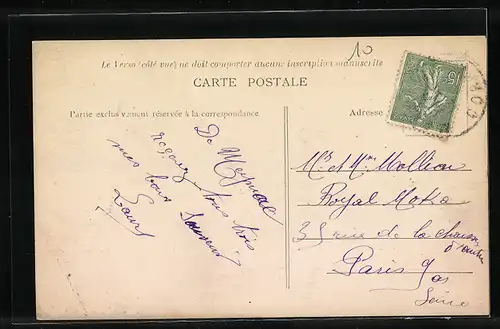 10
Le Verso (côté vue) ne doit comporter aucune inscription manuscrite
CARTE POSTALE
Partie exclusivement réservée à la correspondance
Adresse
15
De Meymac
recevez tous trois
mes bons souvenirs
Mr et Mme Mollion
Royal Moka
35 rue de la chaussée
d'antin
Paris 9es
Seine